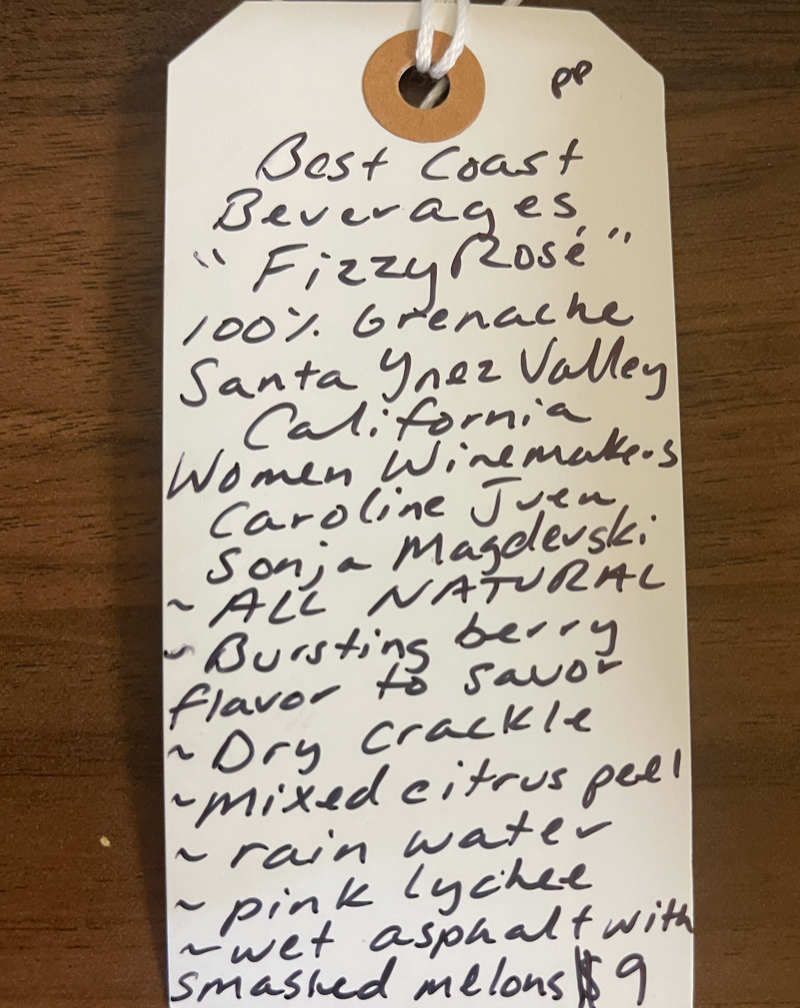 pp
Best Coast
Beverages
"Fizzy Rosé"
100% Grenache
Santa Ynez Valley
California
Women Winemakers
Caroline Juen
Sonja Magdevski
~ ALL NATURAL
~ Bursting berry
flavor to savor
~ Dry crackle
~ mixed citrus peel
~ rain water
~ pink lychee
~ wet asphalt with
smashed melons $9